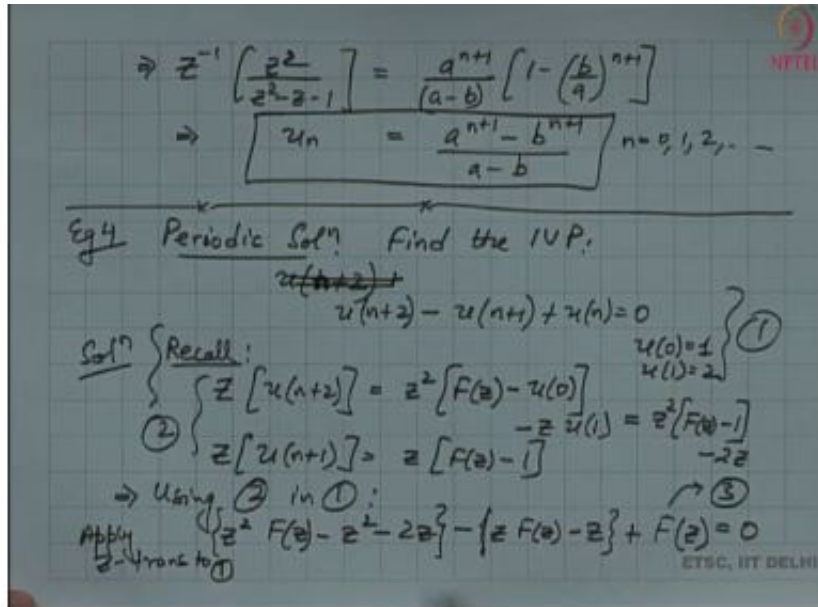 NPTEL
⇒ Z⁻¹ [z²/(z²-z-1)] = aⁿ⁺¹/(a-b) [1-(b/a)ⁿ⁺¹]
⇒ uₙ = (aⁿ⁺¹ - bⁿ⁺¹)/(a-b) n=0,1,2,. . –
Eg4 Periodic Solⁿ. Find the IVP:
u(n+2)+
u(n+2) - u(n+1) + u(n) = 0
u(0)=1 ①
Solⁿ Recall: u(1)=2
② Z[u(n+2)] = z²[F(z) - u(0)]
- z u(1) = z²[F(z)-1]
-2z
Z[u(n+1)] = z[F(z)-1]
⇒ Using ② in ①: → ③
Apply {z² F(z) - z² - 2z} - {z F(z) - z} + F(z) = 0
z-trans to ①
ETSC, IIT DELHI